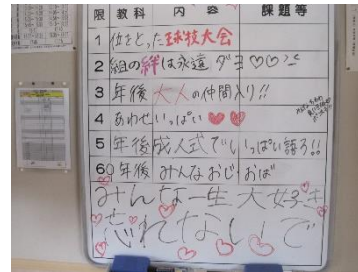 限 教科 内容 課題等
1 位をとった球技大会
2 組の絆は永遠ダヨ♡♡
3 年後大人の仲間入り!!
4 あわせいっぱい♥♥
5 年後成人式でいっぱい語ろ!!
60 年後みんなおじおば
みんな一生大好き
忘れないで